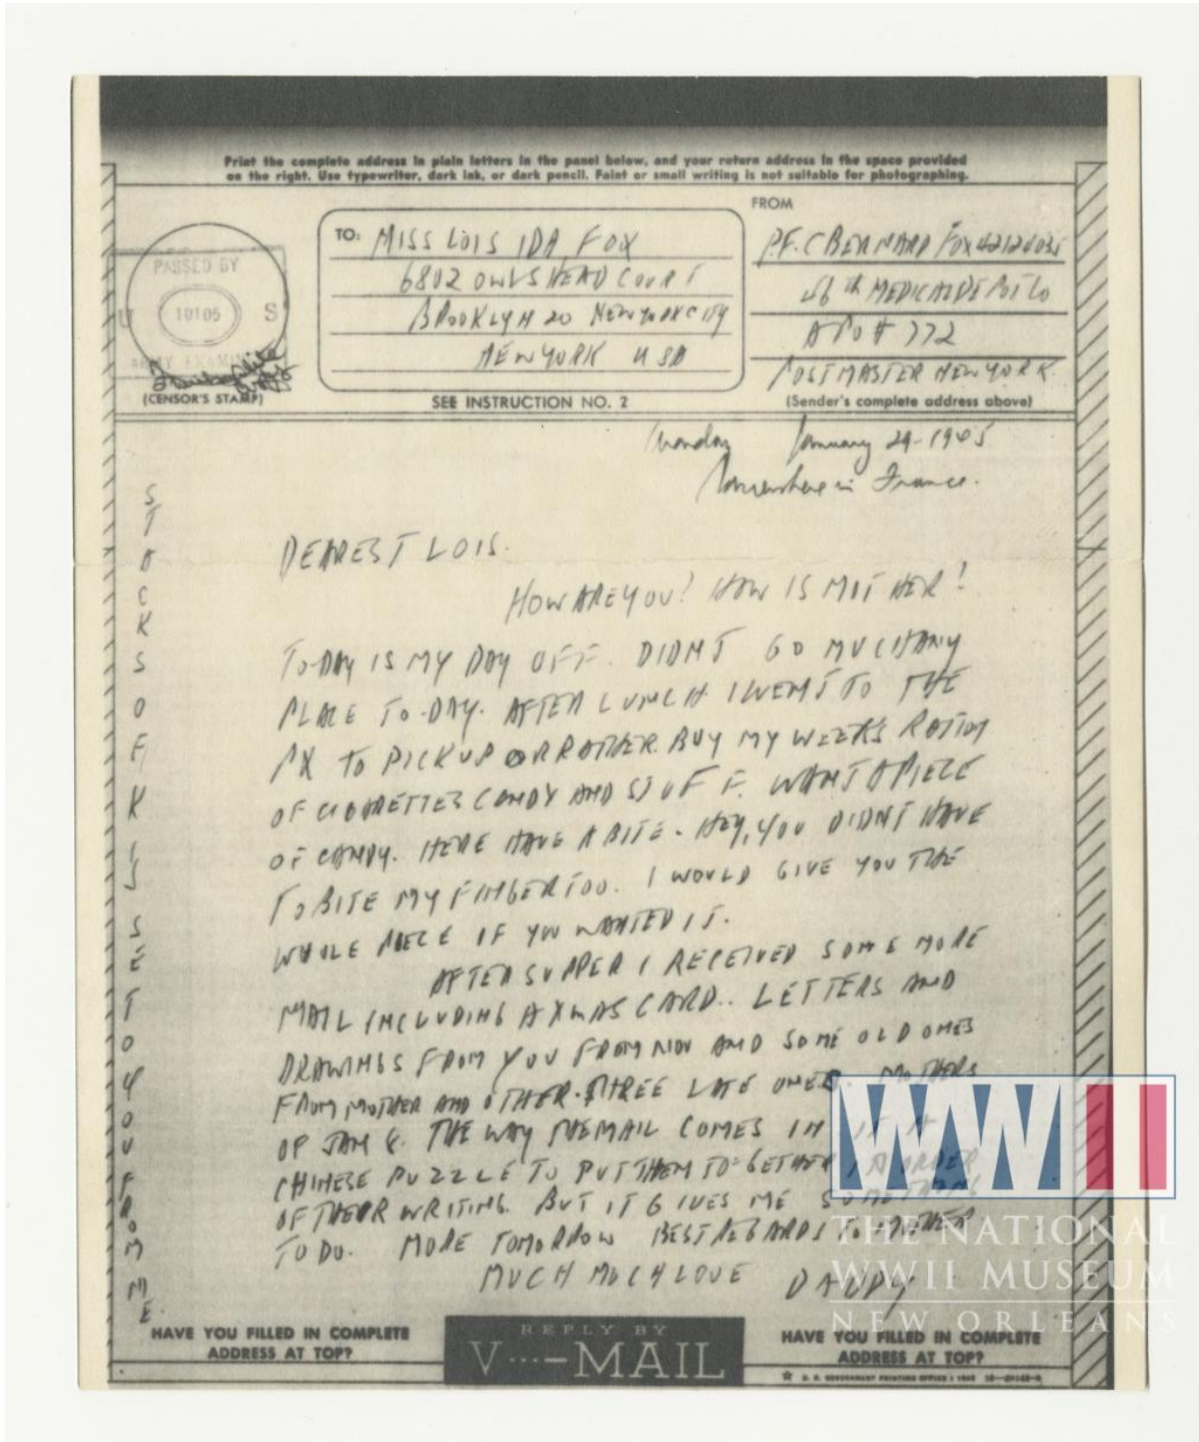 Print the complete address in plain letters in the panel below, and your return address in the space provided
on the right. Use typewriter, dark ink, or dark pencil. Faint or small writing is not suitable for photographing.
FROM
TO: MISS LOIS IDA FOX
6802 OWLS HEAD COURT
BROOKLYN 20 NEW YORK CITY
NEW YORK U S A
P.F.C BERNARD FOX 42124035
56th MEDICAL DEPOT CO
APO # 772
POSTMASTER NEW YORK
PASSED BY
U 10105 S
ARMY EXAMINER
(CENSOR'S STAMP)
SEE INSTRUCTION NO. 2
(Sender's complete address above)
Monday January 29-1945
Somewhere in France.
DEAREST LOIS.
HOW ARE YOU? HOW IS MOTHER?
TO-DAY IS MY DAY OFF. DIDNT GO MUCH ANY
PLACE TO-DAY. AFTER LUNCH I WENT TO THE
PX TO PICK UP OR RATHER BUY MY WEEKS RATION
OF CIGARETTES CANDY AND STUFF. WANT A PIECE
OF CANDY. HERE HAVE A BITE - HEY, YOU DIDNT HAVE
TO BITE MY FINGER TOO. I WOULD GIVE YOU THE
WHOLE PIECE IF YOU WANTED IT.
AFTER SUPPER I RECEIVED SOME MORE
MAIL INCLUDING A XMAS CARD.. LETTERS AND
DRAWINGS FROM YOU FROM NOV AND SOME OLD ONES
FROM MOTHER AND OTHER. THREE LATE ONES. MOTHERS
OF JAN 8. THE WAY THE MAIL COMES IN IT A
CHINESE PUZZLE TO PUT THEM TO-GETHER IN ORDER
OF THEIR WRITING. BUT IT GIVES ME SOMETHING
TO DO. MORE TOMORROW BEST REGARDS TO MOTHER
MUCH MUCH LOVE DADDY
STACKS OF KISSES TO YOU FROM ME
HAVE YOU FILLED IN COMPLETE
ADDRESS AT TOP?
REPLY BY
V···—MAIL
HAVE YOU FILLED IN COMPLETE
ADDRESS AT TOP?
WWII
THE NATIONAL
WWII MUSEUM
NEW ORLEANS